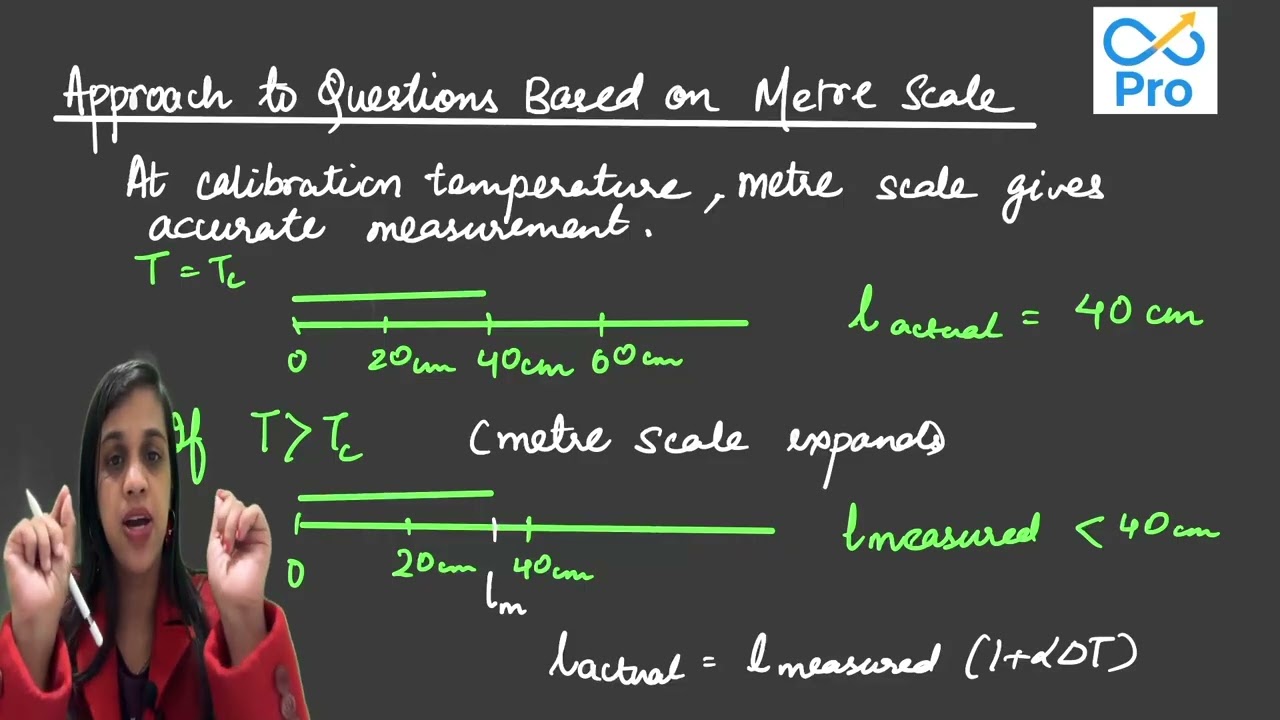 Pro
Approach to Questions Based on Metre Scale
At calibration temperature, metre scale gives
accurate measurement.
T = Tc
0 20cm 40cm 60cm
l actual = 40 cm
If T > Tc (metre scale expands)
0 20cm 40cm
lm
l measured < 40cm
l actual = l measured (1+αΔT)